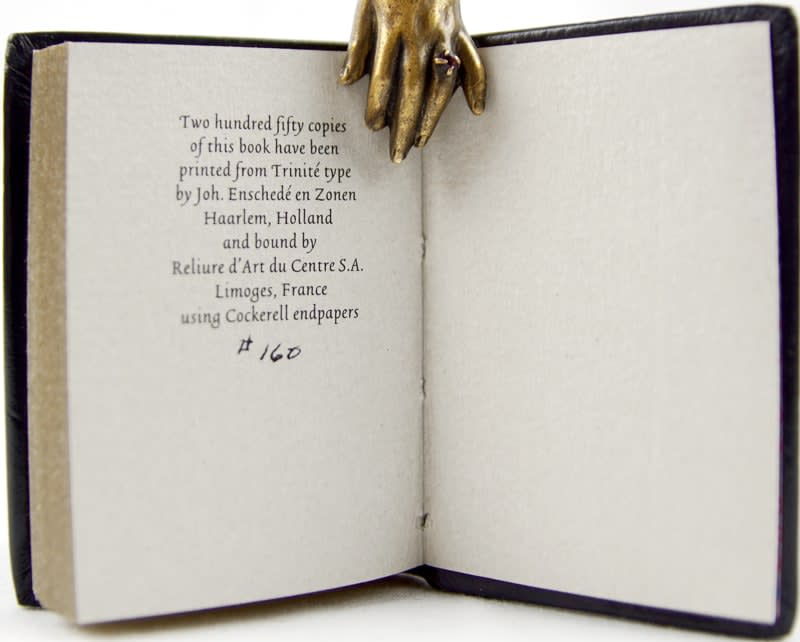 Two hundred fifty copies
of this book have been
printed from Trinité type
by Joh. Enschedé en Zonen
Haarlem, Holland
and bound by
Reliure d'Art du Centre S.A.
Limoges, France
using Cockerell endpapers
# 160